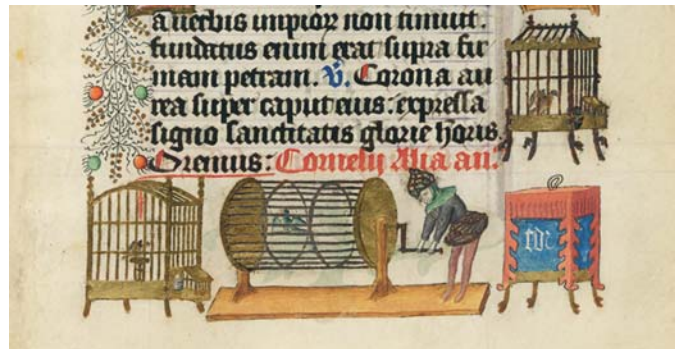 a uerbis impioꝝ non timuit.
fundatus enim erat supra fir
mam petram. V. Corona au
rea super caput eius: expressa
signo sanctitatis glorie hōris.
Oremus: Cornelij Alia an.